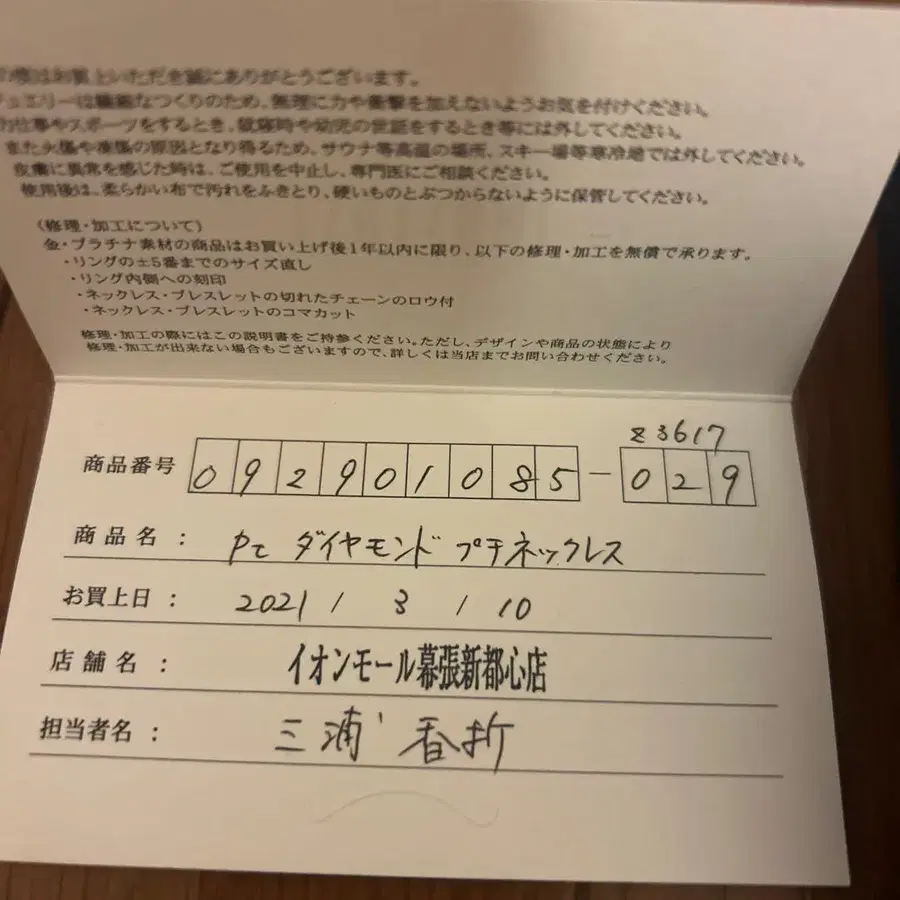 の度はお買上いただき誠にありがとうございます。
ジュエリーは繊細なつくりのため、無理に力や衝撃を加えないようお気を付けください。
力仕事やスポーツをするとき、就寝時や幼児の世話をするとき等には外してください。
また火傷や凍傷の原因となり得るため、サウナ等高温の場所、スキー場等寒冷地では外してください。
皮膚に異常を感じた時は、ご使用を中止し、専門医にご相談ください。
使用後は、柔らかい布で汚れをふきとり、硬いものとぶつからないように保管してください。
〈修理・加工について〉
金・プラチナ素材の商品はお買い上げ後1年以内に限り、以下の修理・加工を無償で承ります。
・リングの±5番までのサイズ直し
・リング内側への刻印
・ネックレス・ブレスレットの切れたチェーンのロウ付
・ネックレス・ブレスレットのコマカット
修理・加工の際にはこの説明書をご持参ください。ただし、デザインや商品の状態により
修理・加工が出来ない場合もございますので、詳しくは当店までお問い合わせください。
z3617
商品番号 092901085-029
商品名: Pt ダイヤモンド プチネックレス
お買上日: 2021 / 3 / 10
店舗名: イオンモール幕張新都心店
担当者名: 三浦 香折